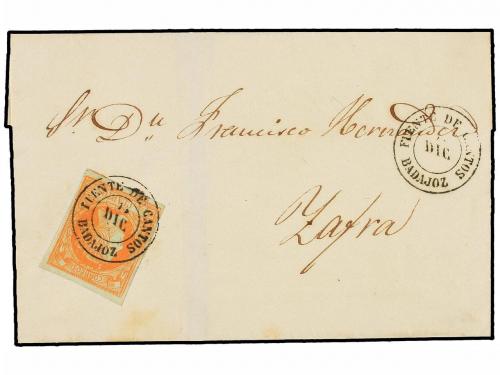 Sr. Dn. Francisco Hernandez
Zafra
FUENTE DE CANTOS
DIC
BADAJOZ
FUENTE DE CANTOS
DIC
BADAJOZ